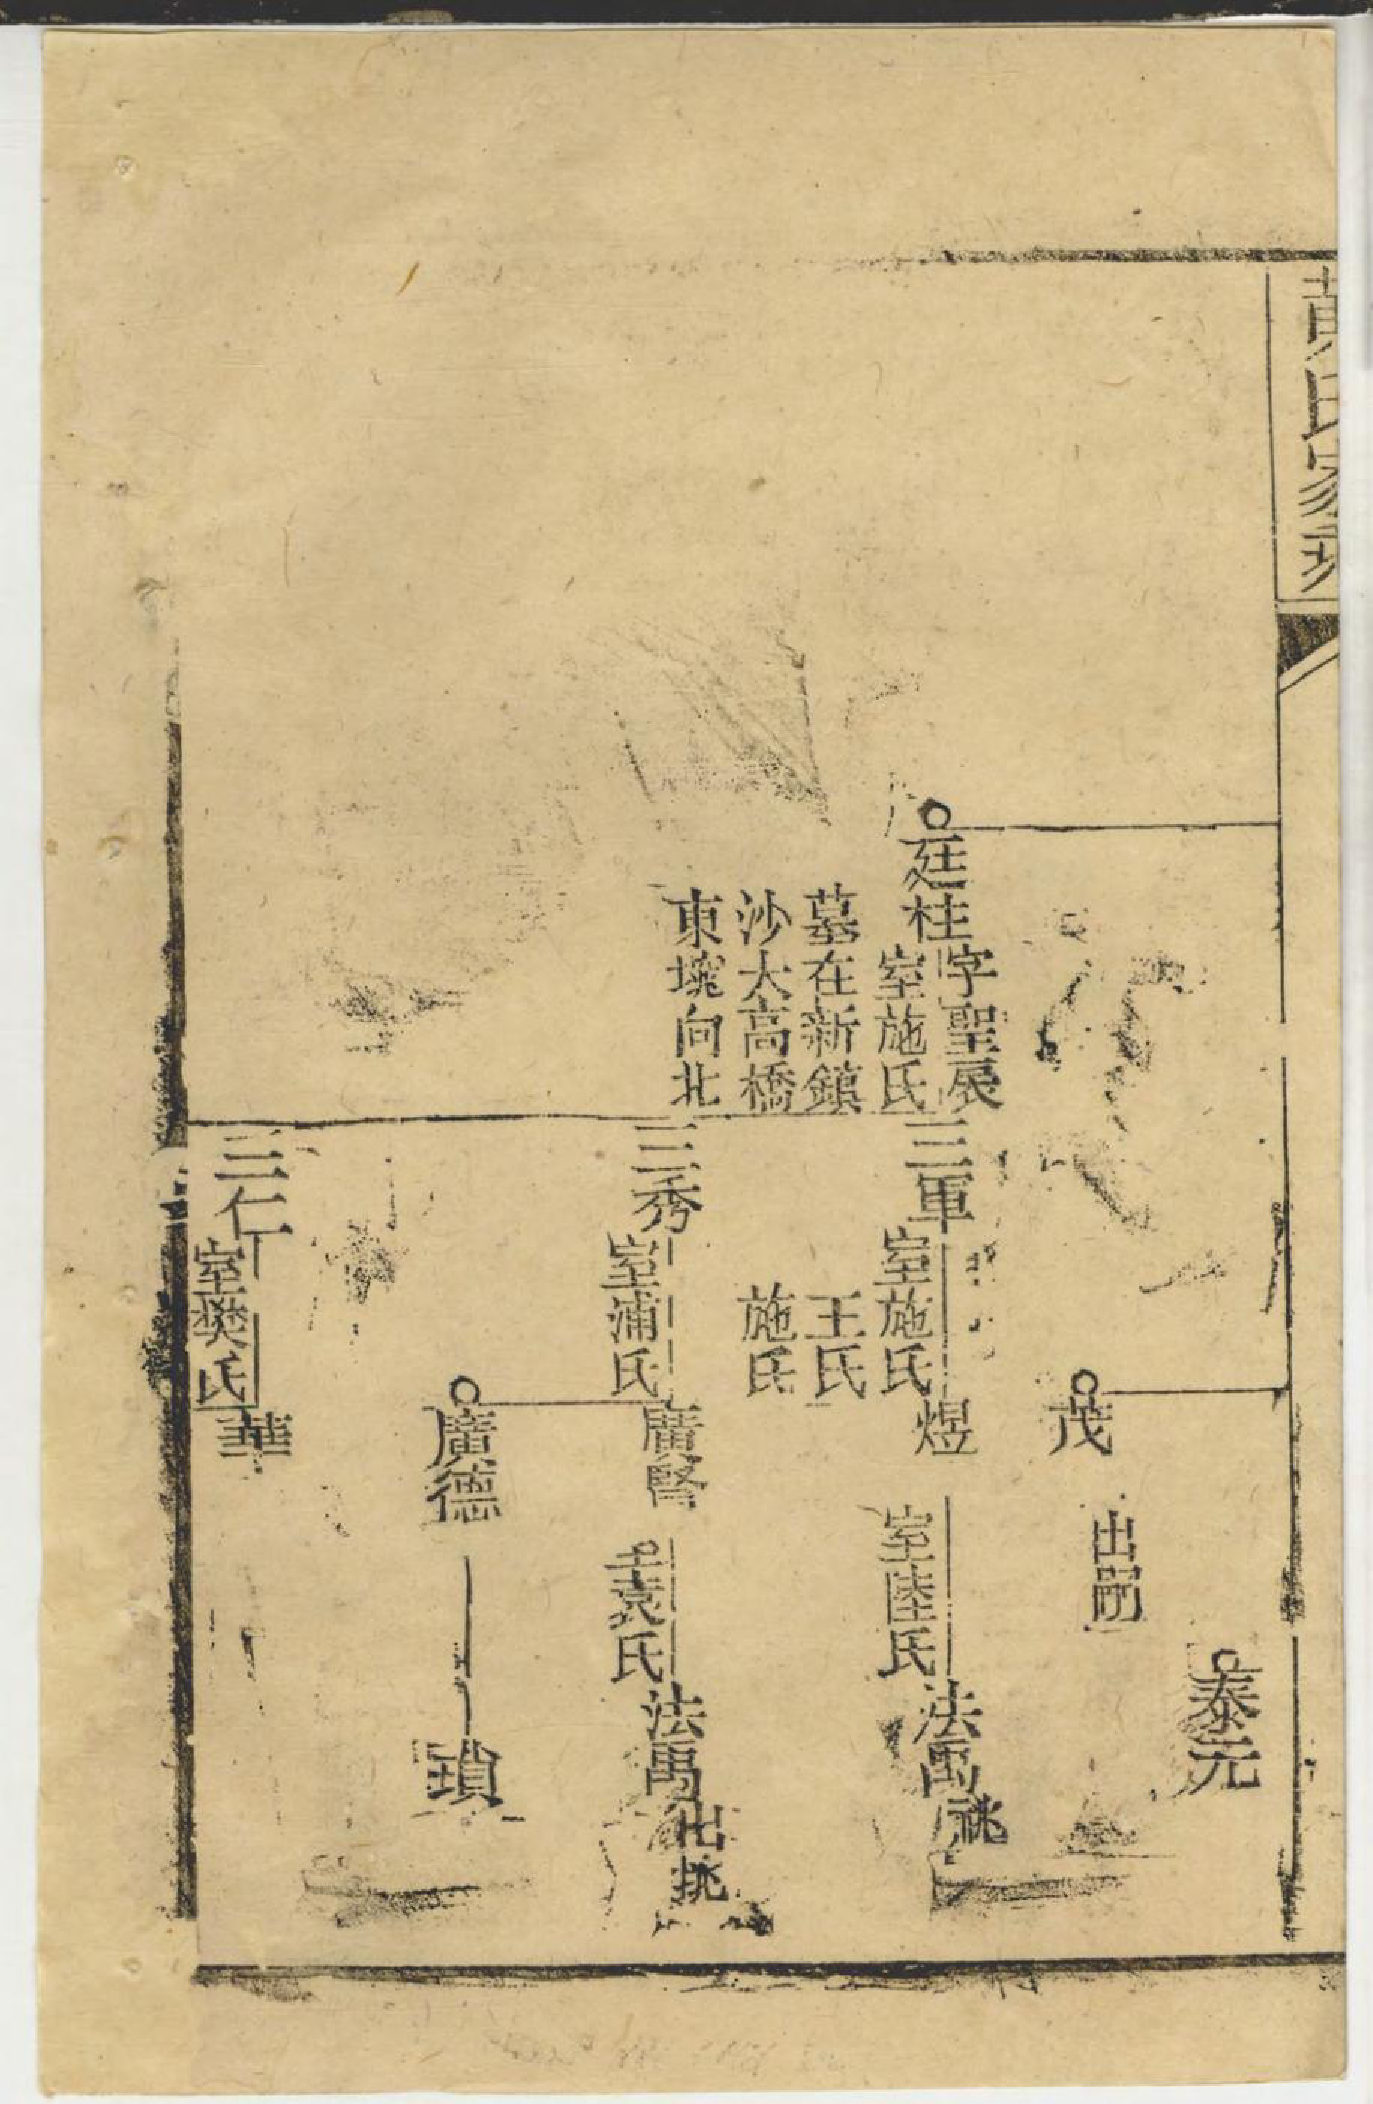 黄氏家
廷桂
字聖展
室施氏
墓在新鎮
沙大高橋
東壠向北
三軍
室施氏
王氏
施氏
三秀
室浦氏
三仁
室樊氏
茂
出嗣
煜
室陸氏
廣賢
袁氏
廣德
華
泰元
法禹
祧
法禹
出
瑣